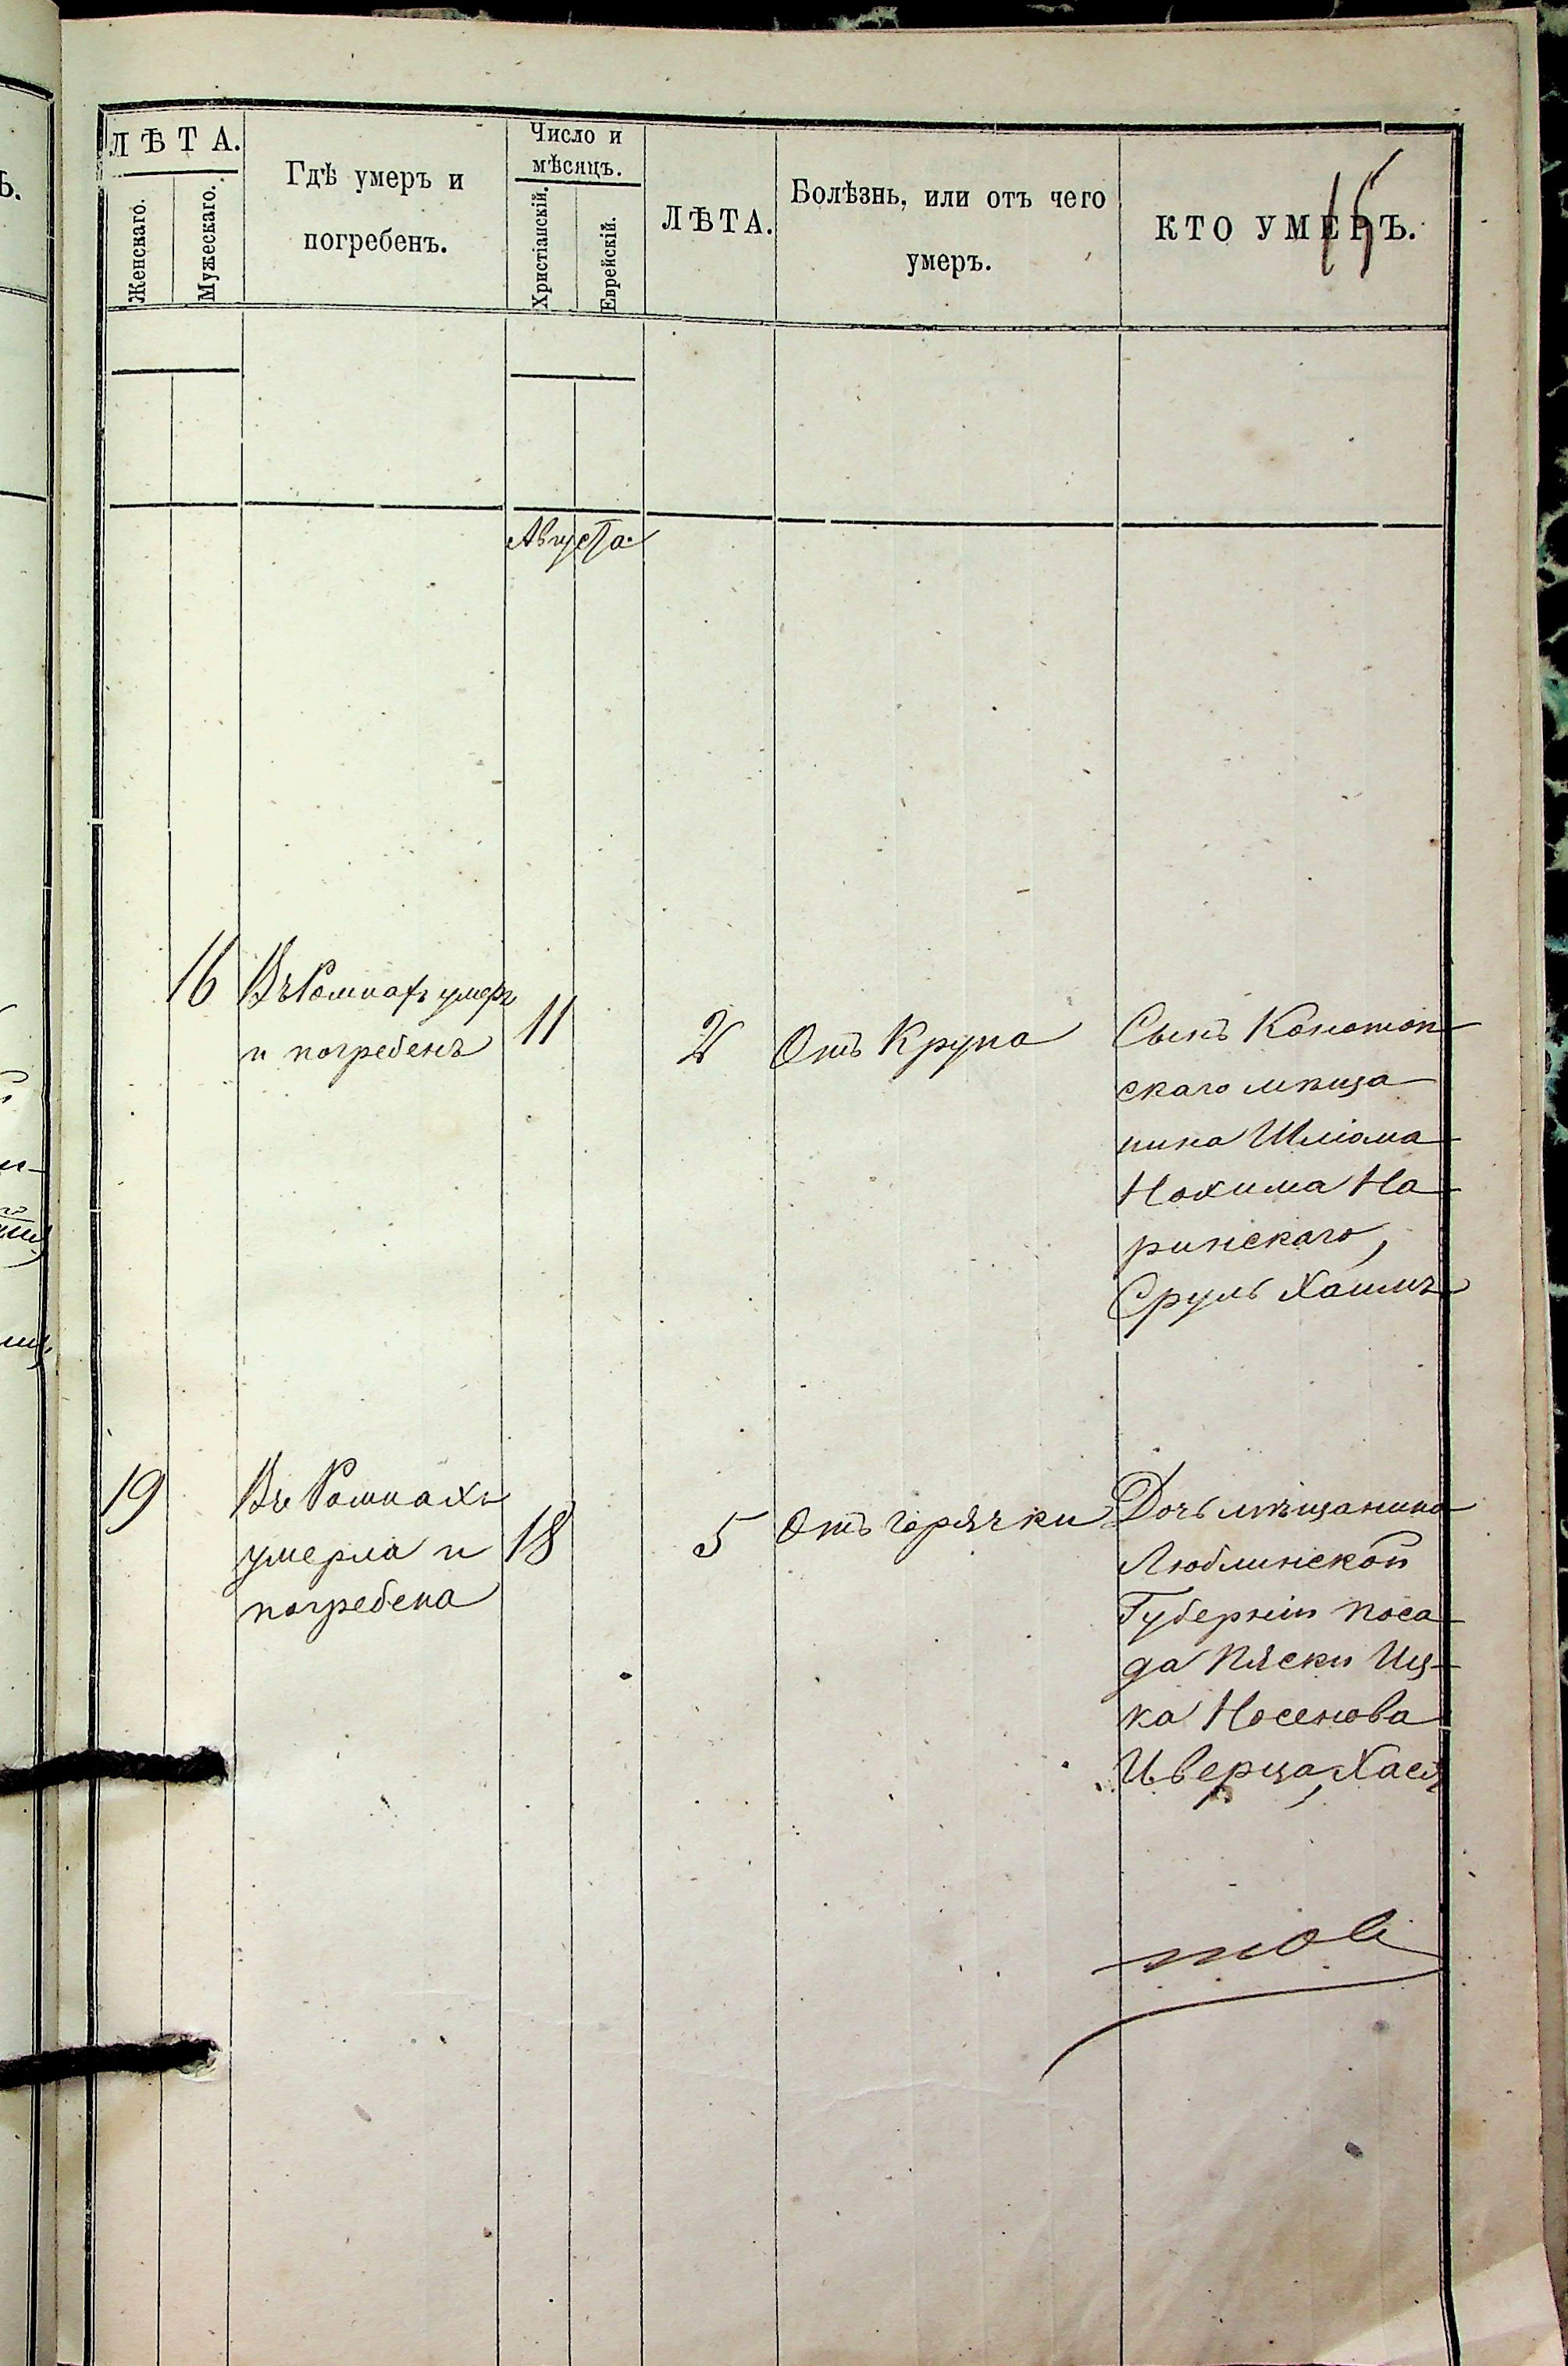 15
ЛѢТА.
Женскаго.
Мужескаго.
Гдѣ умеръ и
погребенъ.
Число и
мѣсяцъ.
Христіанскій.
Еврейскій.
ЛѢТА.
Болѣзнь, или отъ чего
умеръ.
КТО УМЕРЪ.
Августа
16
Въ Ромнахъ умеръ
и погребенъ
11
2
Отъ Крупа
Сынъ Конотоп
скаго мѣща
нина Шліома
Нохима На
ринскаго,
Сруль Хаимъ
19
Въ Ромнахъ
умерла и
погребена
18
5
Отъ горячки
Дочь мѣщанина
Люблинской
Губерніи поса
да Пяски Иц
ка Носенова
Цверца, Хася